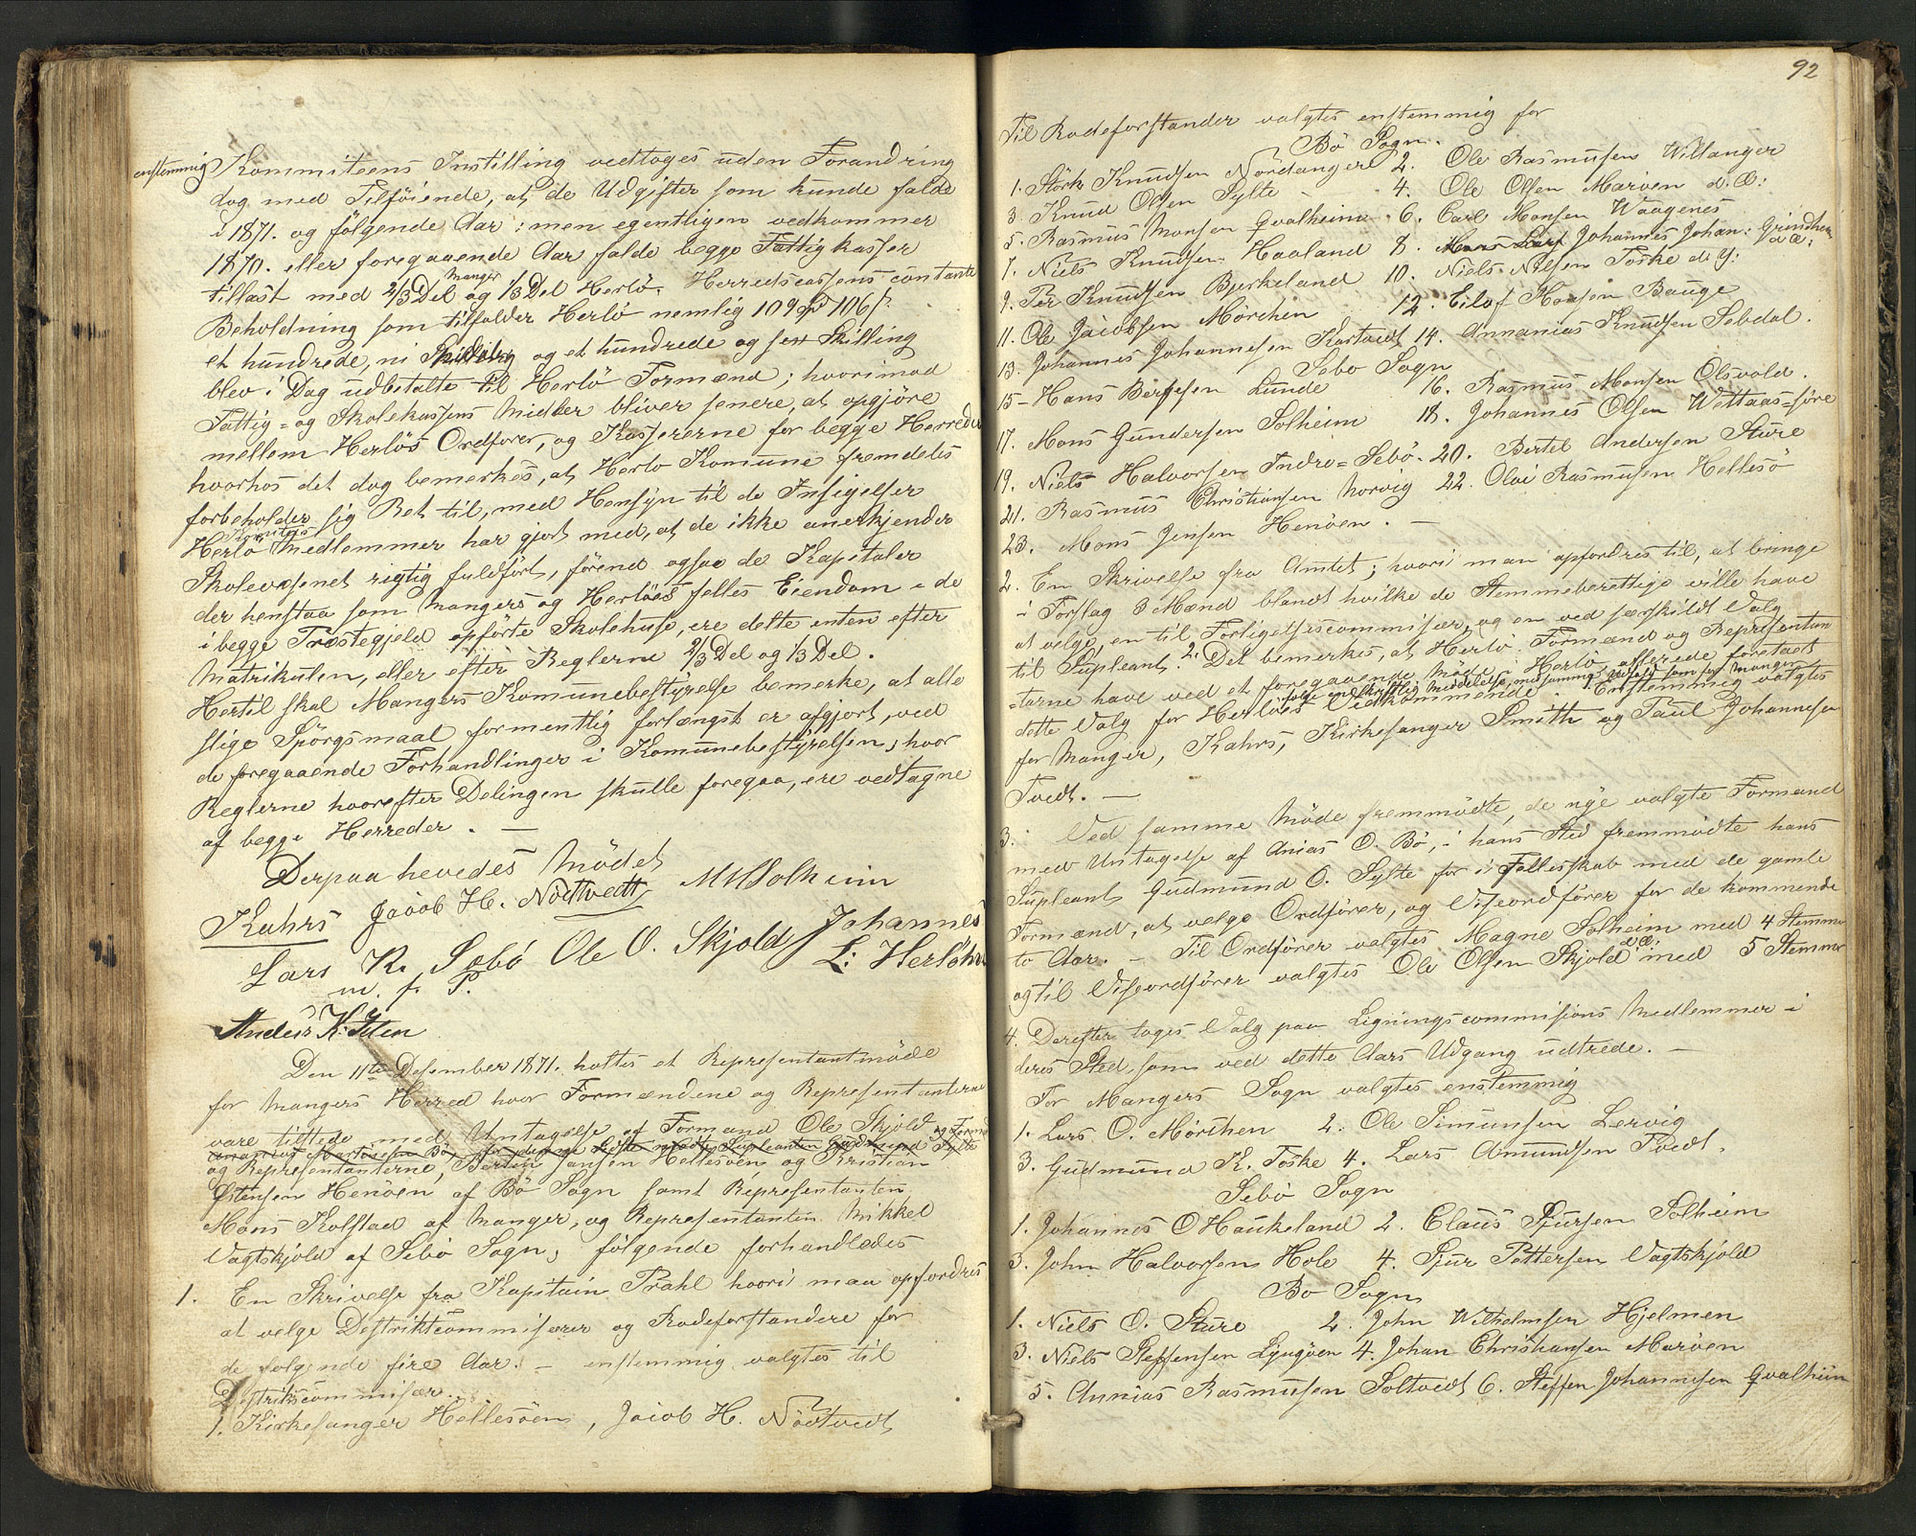 enstemmig Kommiteens Instilling vedtoges uden Forandring
dog med Tilföiende, at de Udgifter som kunde falde
i 1871. og fölgende Aar; men egentligen vedkommer
1870. eller foregaaende Aar falde begge Fattigkasser
tillast med 2/3 Del Manger og 1/3 Del Herlö. Herredscassens contante
Beholdning som tilfalder Herlö nemlig 109 Spd 106 s.
et hundrede, ni og et hundrede og sex Skilling
blev i Dag udbetalte til Herlö Formænd; hvorimod
Fattig- og Skolekassens Midler bliver senere, at opgjöre
mellem Herlös Ordförer, og Kassererne for begge Herreder
hvorhos det dog bemerkes, at Herlo Komune fremdeles
forbeholder sig Ret til, med Hensyn til de Insigelser
Herlö Komites Medlemmer har gjort med, at de ikke anerkjender
Skolevæsenet rigtig fuldfört, förend ogsaa de Kapitaler
der henstaa som Mangers og Herlöes felles Eiendom i de
i begge Præstegjeld opförte Skolehuse, ere delte enten efter
Matrikulen, eller efter Reglerne 2/3 Del og 1/3 Del.
Hertil skal Mangers Komunebestyrelse bemerke, at alle
slige Spörgsmaal formentlig forlængst er afgjort, ved
de foregaaende Forhandlinger i Komunebestyrelsen, hvor
Reglerne hvorefter Delingen skulle foregaa, ere vedtagne
af begge Herreder. —
Derpaa hevedes Mödet
Kahrs Jacob H. Nödtvedt M H Solheim
Lars R. Sebö Ole O. Skjold Johannes
m. f. P. L: Herlöhn
Anders K: Iden
Den 11te Desember 1871. holtes et Representantmöde
for Mangers Herred hvor Formændene og Representanterne
vare tilstede med Untagelse af Formand Ole Skjold
og Representanterne, Bertin Jansen Hellesöen og Kristian
Östensen Henöen af Bö Sogn samt Representanten
Mons Kolstad af Manger, og Representanten Mikkel
Vagtskjold af Sebö Sogn; fölgende forhandledes
1. En Skrivelse fra Kapitain Prahl hvori man opfordres
at velge Destriktcommisærer og Rodeforstandere for
de folgende fire Aar. — enstemmig valgtes til
Destrikscommisær.
1. Kirkesanger Hellesöen, Jacob H. Nödtvedt
92
Til Rodeforstander valgtes enstemmig for
Bö Sogn.
1. Störk Knudsen Nordanger 2. Ole Rasmusen Villanger
3. Knud Olsen Sylte - 4. Ole Olsen Maröen d. Æ:
5. Rasmus Monsen Qvalheim - 6. Carl Monsen Waagenes
7. Niels Knudsen Haaland 8. Johannes Johan: Grindheim d Æ:
9. Per Knudsen Bjerkeland 10. Niels Nilsen Toske d. Y:
11. Ole Jacobsen Mörchen 12. Eilof Hansen Bauge
13. Johannes Johannesen Kartvedt 14. Annanias Knudsen Sebdal.
Sebo Sogn
15- Hans Börgesen Lunde 16. Rasmus Monsen Olsvold.
17. Mons Gundersen Solheim 18. Johannes Olsen Wettaas=söre
19. Niels Halvorsen Indre=Sebö. 20. Bertel Andersen Sture
21. Rasmus Christiansen Norvig 22. Olai Rasmusen Hellesö
23. Mons Jensen Henöen. —
2. En Skrivelse fra Amtet; hvori man opfordres til, at bringe
i Forslag 3 Mænd blandt hvilke de Stemmeberettige ville have
at velge, en til Forligelsescommisær, og en ved særskildt Valg
til Supleant. Det bemerkes, at Herlö Formænd og Representan
=terne have ved et foregaaende Möde i Herlö, allerede foretaget
dette Valg for Herlöes Vedkommende. Enstemmig valgtes
for Manger, Kahrs, Kirkesanger Smith og Paul Johannesen
Tvedt. —
3. Ved samme Möde fremmödte, de nye valgte Formænd
med Untagelse af Anias O. Bö, i hans Sted fremmödte hans
Supleant Gudmund O. Sylte for i Fellesskab med de gamle
Formænd, at velge Ordförer, og Viseordförer for de kommende
to Aar. — Til Ordförer valgtes Magne Solheim med 4 Stemmer
og til Viseordförer valgtes Ole Olsen Skjold d Æ: med 5 Stemmer
4. Derefter toges Valg paa Ligningscommisions Medlemmer i
deres Sted som ved dette Aars Udgang udtrede. —
For Mangers Sogn valgtes enstemmig
1. Lars O. Mörchen 2. Ole Simunsen Lervig
3. Gudmund K. Toske 4. Lars Amundsen Tvedt.
Sebö Sogn
1. Johannes O Haukeland 2. Claus Sjursen Solheim
3. John Halvorsen Hole 4. Sjur Pettersen Vagtskjold
Bo Sogn
1. Niels O. Sture 2. John Wilhelmsen Hjelmen
3. Niels Steffensen Lyngöen 4. Johan Christiansen Maröen
5. Annias Rasmusen Soltvedt 6. Steffen Johannesen Qvalheim